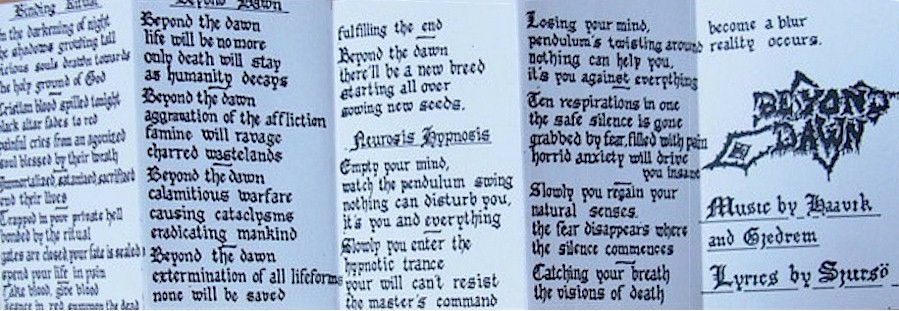 Binding Ritual
In the darkening of night
the shadows growing tall
vicious souls drawn towards
the holy ground of God
Cristian blood spilled tonight
black altar fades to red
painful cries from an agonized
soul blessed by their wrath
Immortalized, satanized, sacrificed
end their lives
Trapped in your private hell
bonded by the ritual
gates are closed, your fate is sealed
spend your life in pain
Take blood, give blood
seance in red summon the dead
Beyond Dawn
Beyond the dawn
life will be no more
only death will stay
as humanity decays
Beyond the dawn
aggravation of the affliction
famine will ravage
charred wastelands
Beyond the dawn
calamitous warfare
causing cataclysms
eradicating mankind
Beyond the dawn
extermination of all lifeforms
none will be saved
fulfilling the end
Beyond the dawn
there'll be a new breed
starting all over
sowing new seeds.
Neurosis Hypnosis
Empty your mind,
watch the pendulum swing
nothing can disturb you,
it's you and everything
Slowly you enter the
hypnotic trance
your will can't resist
the master's command
Losing your mind,
pendulum's twisting around
nothing can help you,
it's you against everything
Ten respirations in one
the safe silence is gone
grabbed by fear, filled with pain
horrid anxiety will drive
you insane
Slowly you regain your
natural senses.
the fear disappears where
the silence commences
Catching your breath
the visions of death
become a blur
reality occurs.
BEYOND
DAWN
Music by Haavik
and Gjedrem
Lyrics by Sjursö